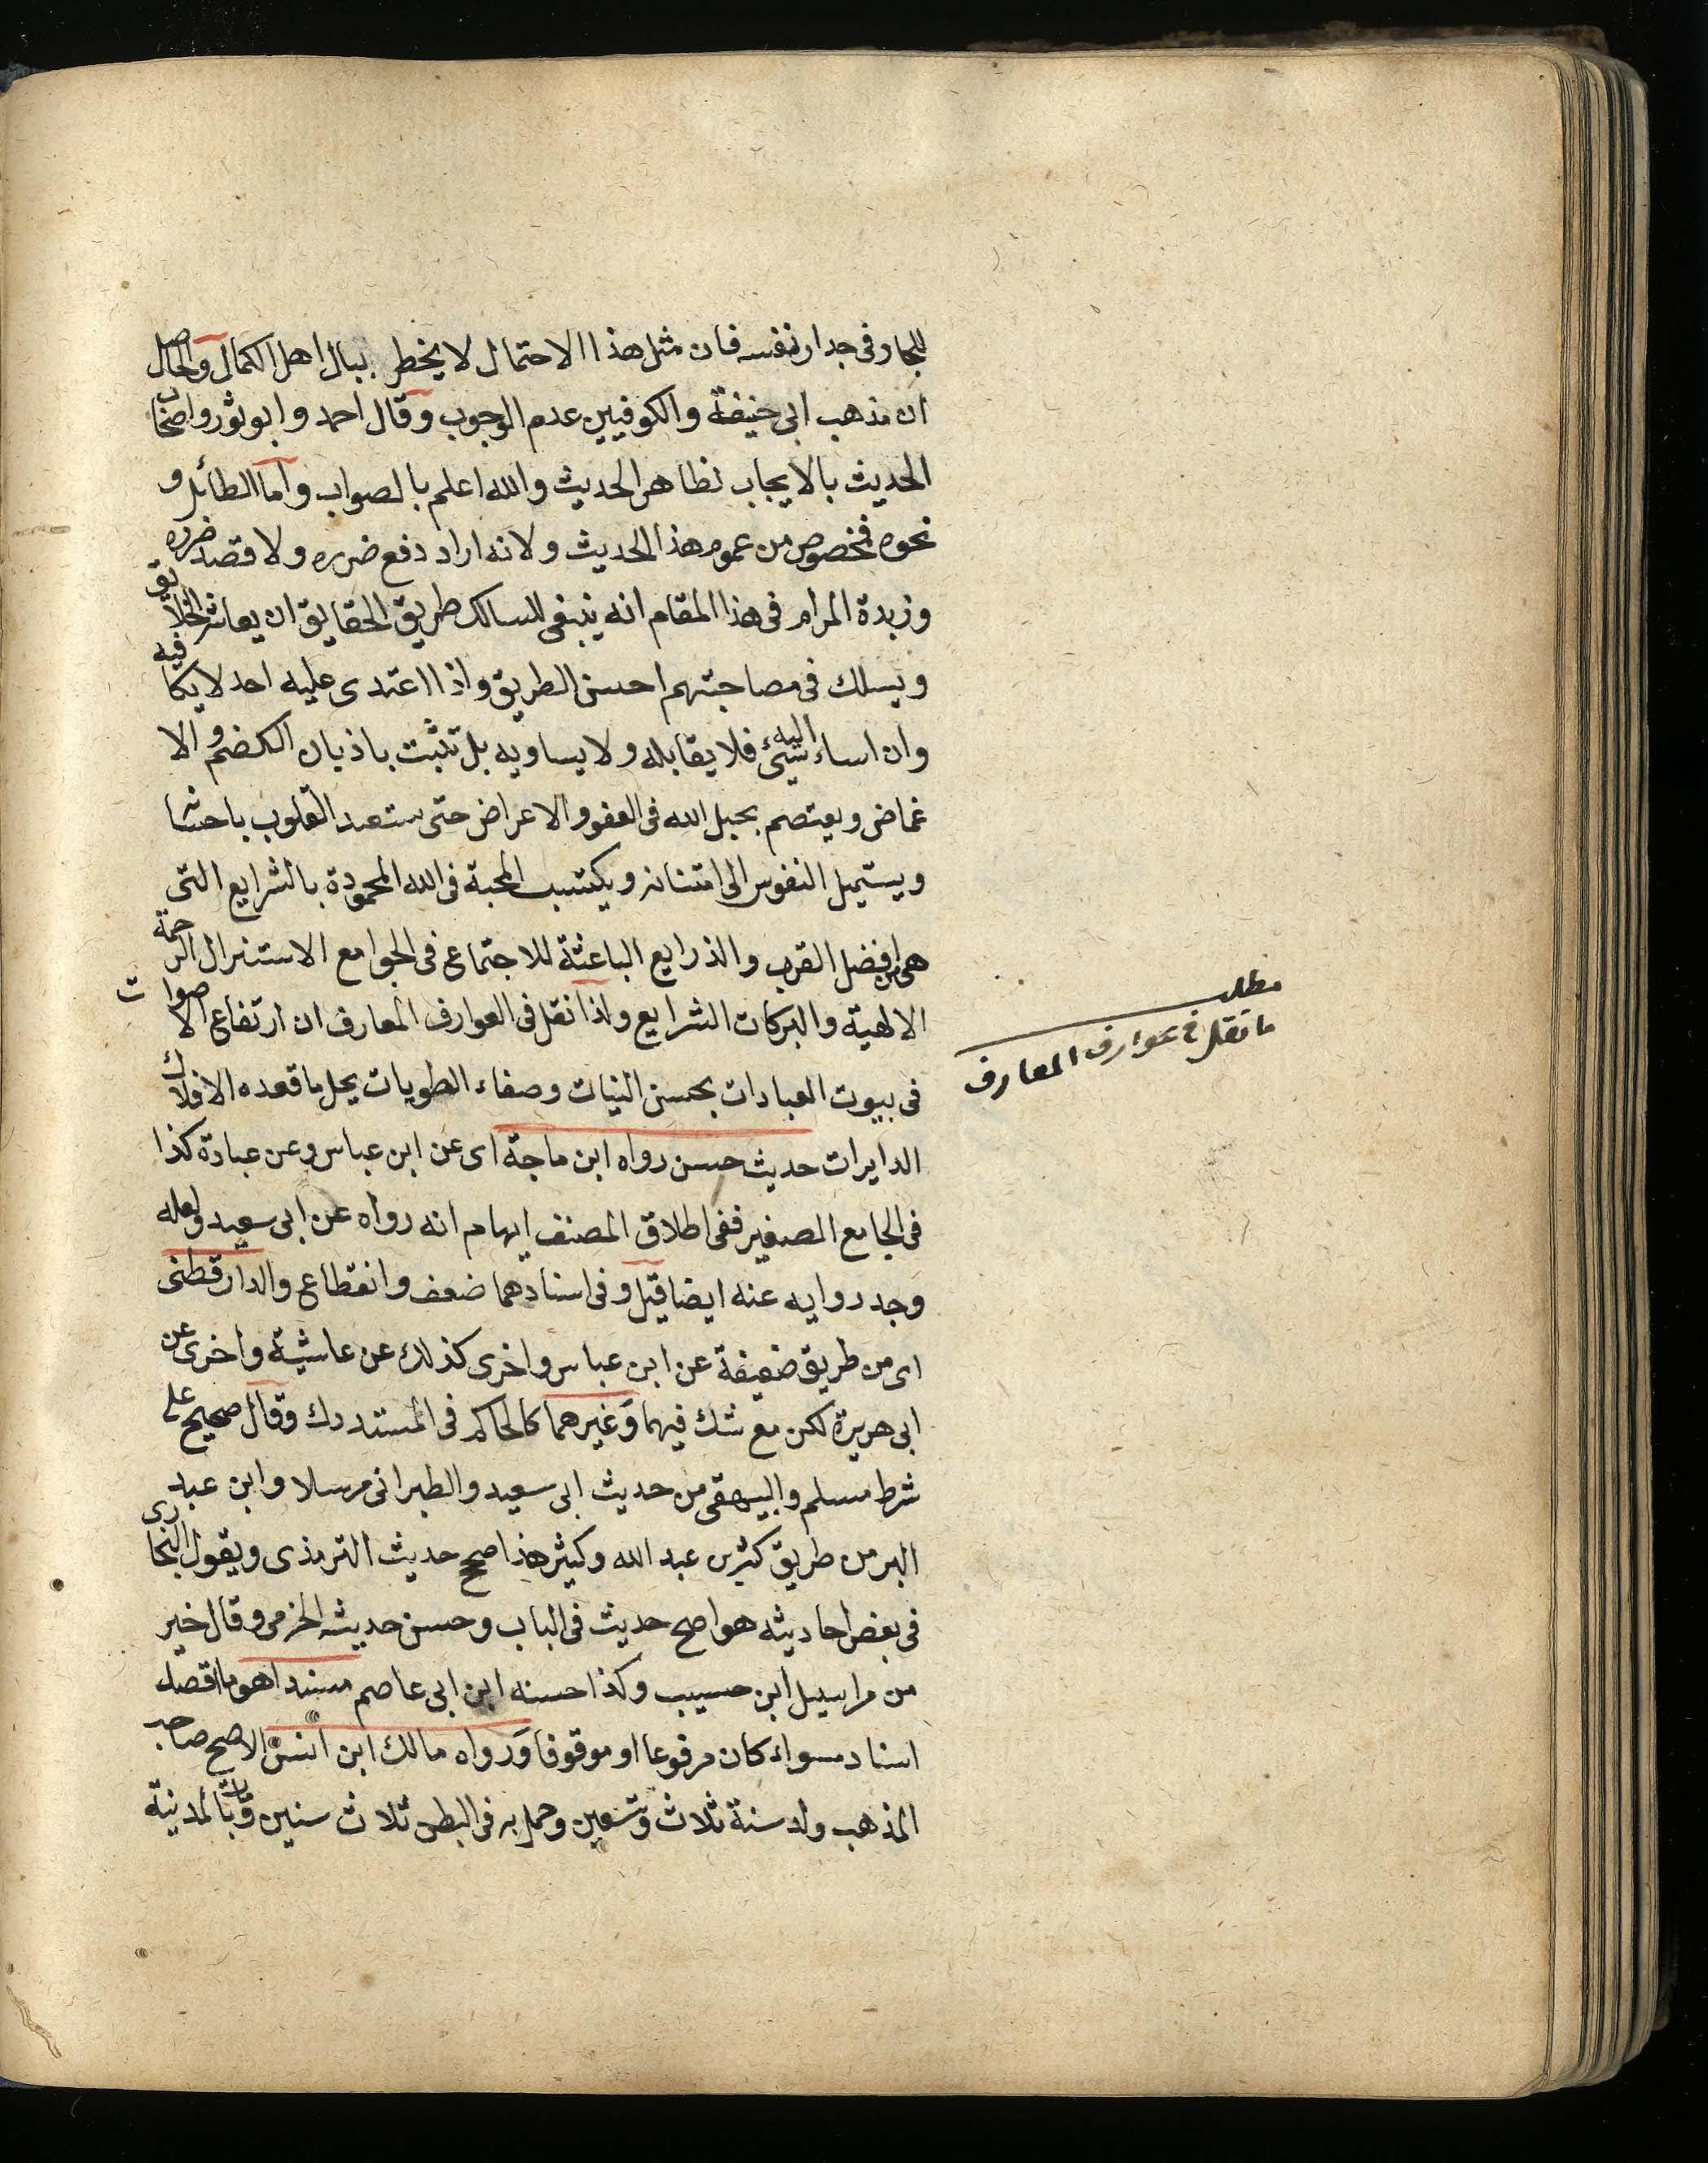 للجار وفى جدار نفسه فان مثل هذا الاحتمال لا يخطر ببال اهل الكمال والحاصل
ان مذهب ابى حنيفة والكوفيين عدم الوجوب وقال احمد وابو ثور واصحاب
الحديث بالايجاب لظاهر الحديث والله اعلم بالصواب واما الطائل و
نحوه فمخصوص من عموم هذا الحديث ولانه اراد دفع ضرره ولا قصد ضرره
وزبدة المرام فى هذا المقام انه ينبغى للسالك طريق الحقايق ان يعاشر الخلايق
ويسلك فى مصاحبتهم احسن الطريق واذا اعتدى عليه احد لا يكافيه
وان اساء اليه شيئ فلا يقابله ولا يساويه بل تثبت باذيال الكضم والا
غماض ويعتصم بحبل الله فى العفو والاعراض حتى ستعبد القلوب باحشا
ويستميل النفوس الى امتنانه ويكتسب المحبة فى الله المحمودة بالشرايع التى
هى من افضل القرب والذرايع الباعثة للاجتماع فى الجوامع الاستنزال الرحمة
الالهية والبركات الشرايع ولذا نقل فى العوارف المعارف ان ارتفاع الاصوات
فى بيوت العبادات بحسن النيات وصفاء الطويات يحل ما قعده الافلاك
الدايرات حديث حسن رواه ابن ماجة اى عن ابن عباس وعن عبادة كذا
فى الجامع الصغير ففى اطلاق المصنف ايهام انه رواه عن ابى سعيد ولعله
وجد روايه عنه ايضا قيل وفى اسنادهما ضعف وانقطاع والدارقطنى
اى من طريق ضعيفة عن ابن عباس واخرى كذلك عن عاشية واخرى عن
ابى هريرة لكن مع شك فيهما وغيرهما كالحاكم فى المستدرك وقال صحيح على
شرط مسلم والبيهقى من حديث ابى سعيد والطبرانى مرسلا وابن عبد
البر من طريق كثير بن عبد الله وكيثر هذا صحح حديث الترمذى ويقول البخارى
فى بعض احاديثه هو اصح حديث فى الباب وحسن حديثه الحزمى وقال خير
من مراسيل ابن حسيب وكذا حسنه ابن ابى عاصم مسندا هو ما اتصل
اسناد سواء كان مرفوعا او موقوفا ورواه مالك ابن انس الاصح صاحب
المذهب ولد سنة ثلاث وتسعين وحمل به فى البطن ثلاث سنين ومات بالمدينة
مطلب
ما نقل فى عوارف المعارف